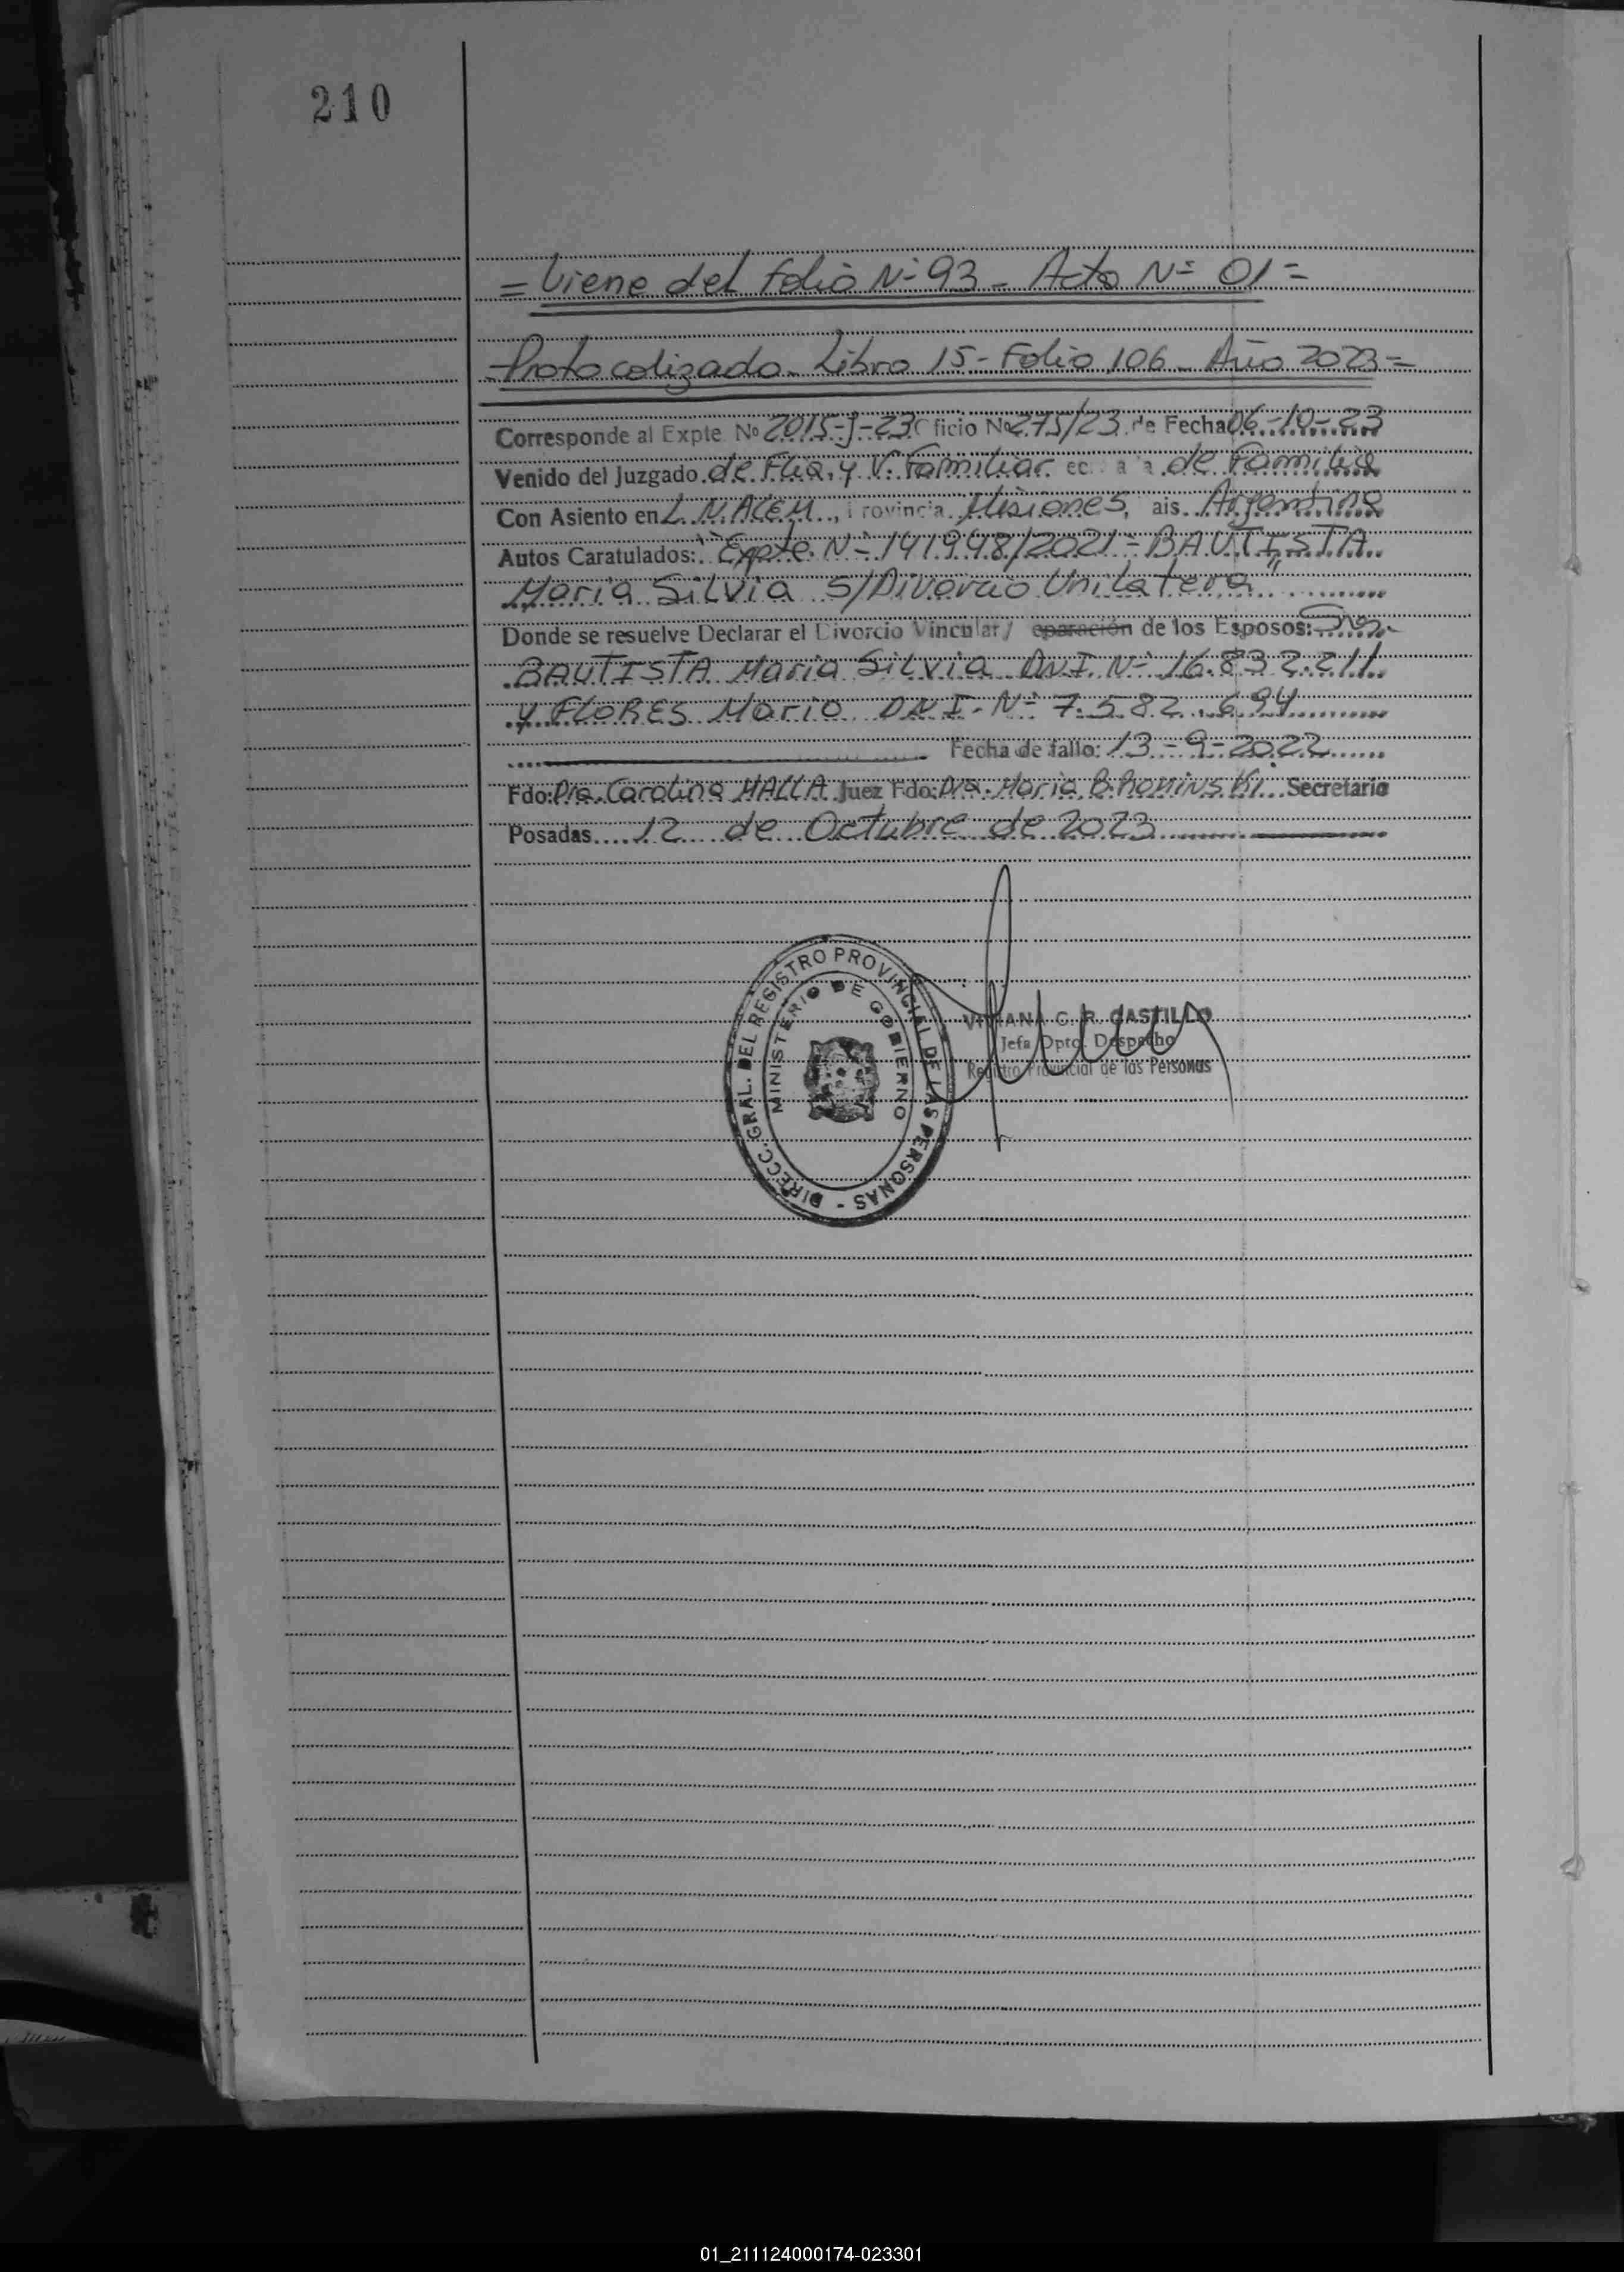 210
= Viene del folio Nº 93 - Acta Nº 01 =
- Protocolizado - Libro 15 - Folio 106 - Año 2023 =
Corresponde al Expte. Nº 2015-J-23 Oficio Nº 275/23 de Fecha 06-10-23
Venido del Juzgado de Flia. y V. Familiar de Familia
Con Asiento en L. N. ALEM, Provincia Misiones, ais Argentina
Autos Caratulados: "Expte. Nº 141948/2021 - BAUTISTA
Maria Silvia S/Divorcio Unilatera"
Donde se resuelve Declarar el Divorcio Vincular/ eparación de los Esposos:
BAUTISTA Maria Silvia DNI. Nº 16.832.211
y FLORES Mario DNI. Nº 7.582.694
Fecha de fallo: 13-9-2022
Fdo: Dra. Carolina HALLA Juez Fdo: Dra. Maria B. Secretaria
Posadas 12 de Octubre de 2023
DIRECC. GRAL. DEL REGISTRO PROVINCIAL DE LAS PERSONAS -
MINISTERIO DE GOBIERNO
VIVIANA C. R. CASTILLO
Jefa Dpto. Despacho
Registro Provincial de las Personas
01_211124000174-023301